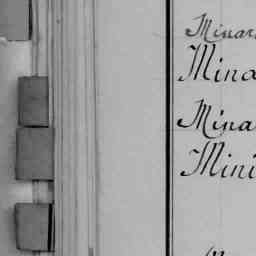 Minar
Mina
Mina
Mini